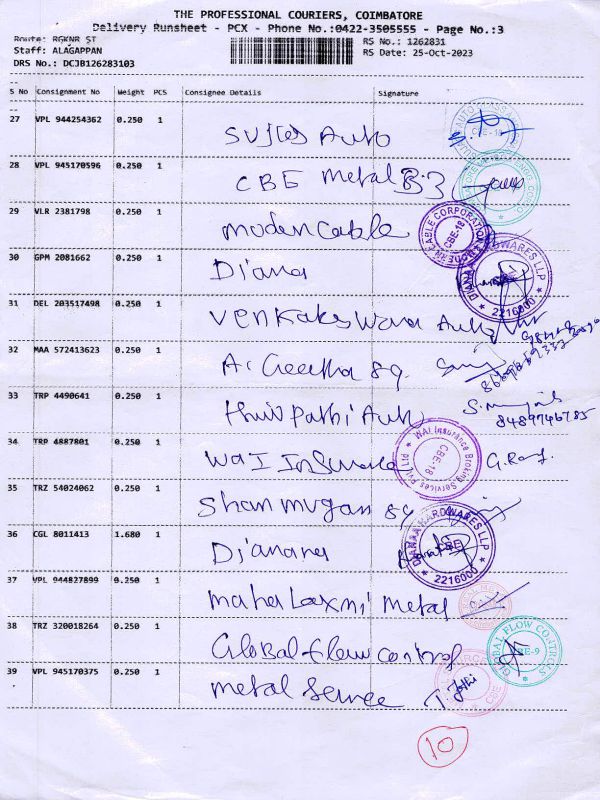 THE PROFESSIONAL COURIERS, COIMBATORE
Delivery Runsheet - PCX - Phone No.:0422-3505555 - Page No.:3
Route: RGKNR ST
RS No.: 1262831
Staff: ALAGAPPAN
RS Date: 25-Oct-2023
DRS No.: DCJB126283103
S No Consignment No Weight PCS Consignee Details Signature
27 VPL 944254362 0.250 1 Auto
CBE-18
28 VPL 945170596 0.250 1 CBE metal
29 VLR 2381798 0.250 1 modern Cable
MODERN CABLE CORPORATION CBE-18
30 GPM 2081662 0.250 1 Diana
DIANAA HARDWARES LLP 2216000
31 DEL 203517498 0.250 1 Venkateswara Auto
32 MAA 572413623 0.250 1 A. Geetha 89.
33 TRP 4490641 0.250 1 Auto
8489746785
34 TRP 4887801 0.250 1 WAI Insurance
WAI Insurance Broking Services Pvt Ltd CBE-18
35 TRZ 54024062 0.250 1 Shanmugam 89
36 CGL 8011413 1.680 1 Dianana
DIANAA HARDWARES LLP CBE 2216000
37 VPL 944827899 0.250 1 maha Laxmi Metal
38 TRZ 320018264 0.250 1 Global flow control
GLOBAL FLOW CONTROLS CBE-9
39 VPL 945170375 0.250 1 metal Service
T. Jothi
10